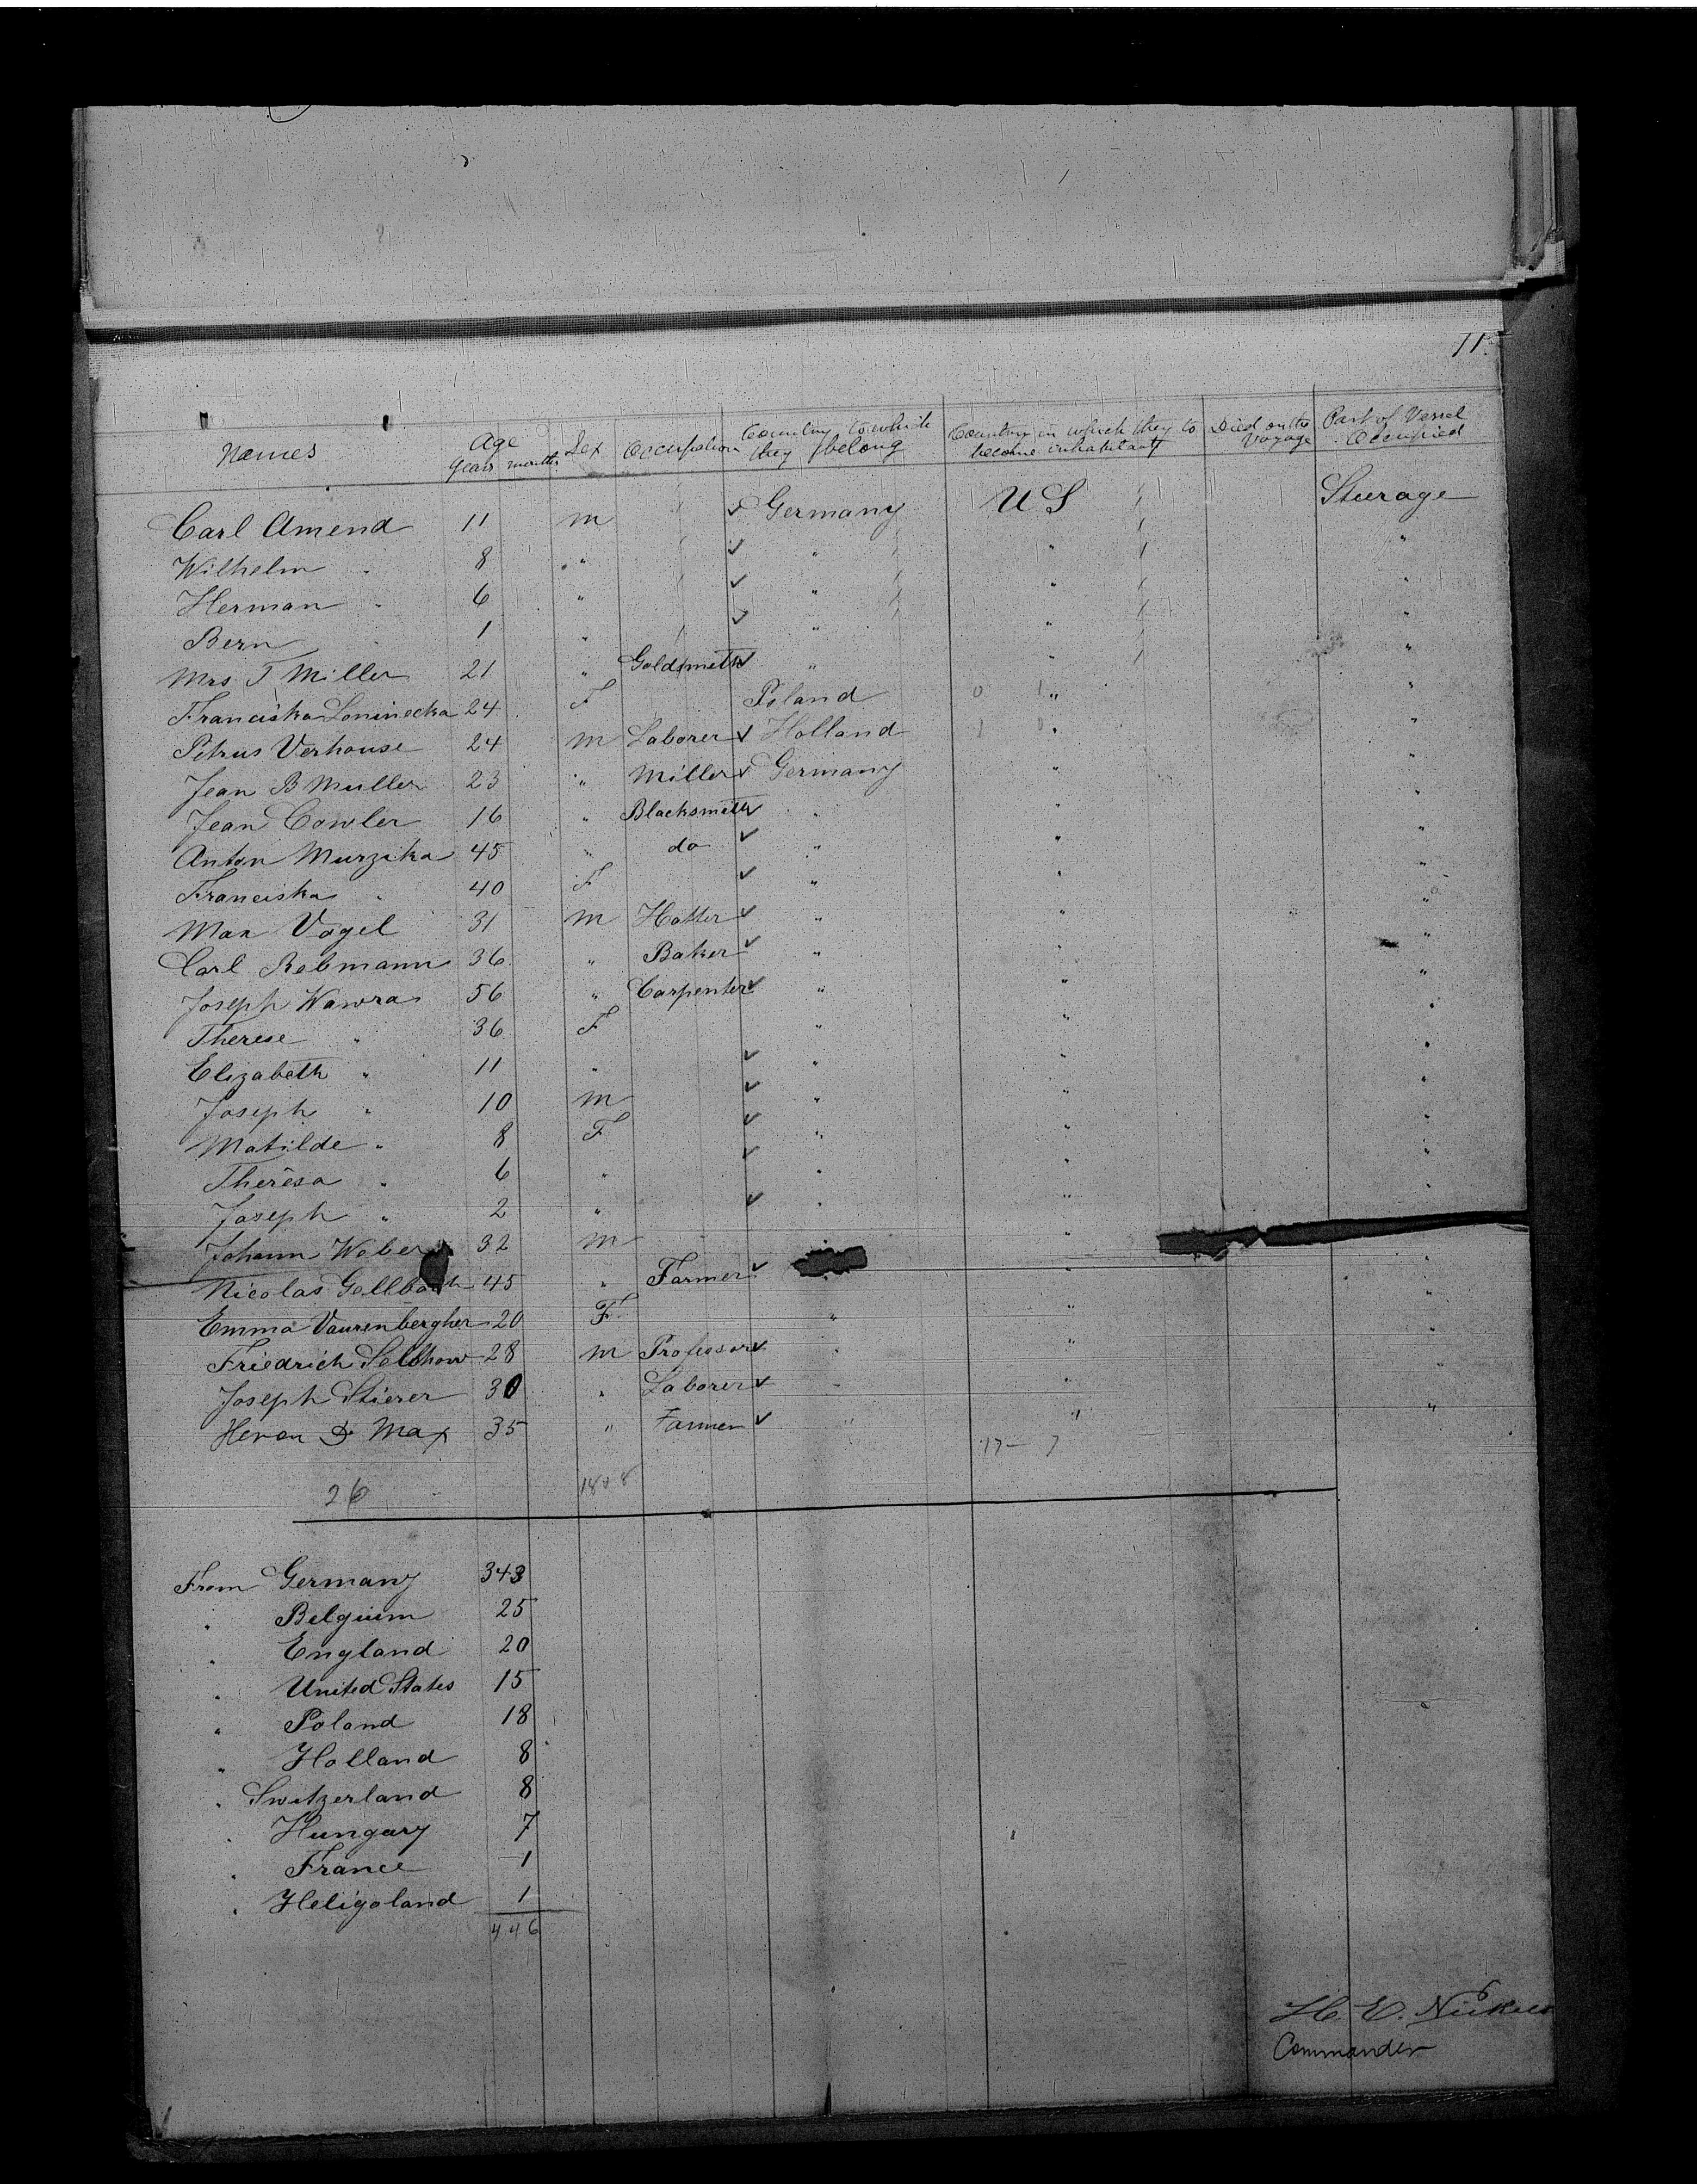 11.
Names Age Years months Sex Occupation Country to which they belong Country in which they to become inhabitants Died on the Voyage Part of Vessel Occupied
Carl Amend 11 m ✓ Germany U S Sturage
Wilhelm " 8 " ✓ " " "
Herman " 6 " ✓ " " "
Bern " 1 " ✓ " " "
Mrs T Miller 21 " Goldsmith ✓ " " "
Franciska Loninecka 24 F Poland " "
Petrus Verhouse 24 m Laborer ✓ Holland " "
Jean B Muller 23 " Miller ✓ Germany " "
Jean Cowler 16 " Blacksmith ✓ " " "
Anton Murzika 45 " do ✓ " " "
Franciska " 40 F ✓ " " "
Max Vogel 31 m Hatter ✓ " " "
Carl Rebmann 36 " Baker ✓ " " "
Joseph Wawra 56 " Carpenter ✓ " " "
Therese " 36 F " " "
Elizabeth " 11 " ✓ " " "
Joseph " 10 m ✓ " " "
Matilde " 8 F ✓ " " "
Theresa " 6 " ✓ " " "
Joseph " 2 " ✓ " " "
Johann Weber 32 m " "
Nicolas Gellbach 45 " Farmer ✓ " " "
Emma Vaurenbergher 20 F " " "
Friedrich Selchow 28 m Professor ✓ " " "
Joseph Stierer 30 " Laborer ✓ " " "
Heron D Max 35 " Farmer ✓ " " "
17 - 7
26 18 + 8
From Germany 343
" Belgium 25
" England 20
" United States 15
" Poland 18
" Holland 8
" Switzerland 8
" Hungary 7
" France 1
" Heligoland 1
446
H. E. Nickels
Commander